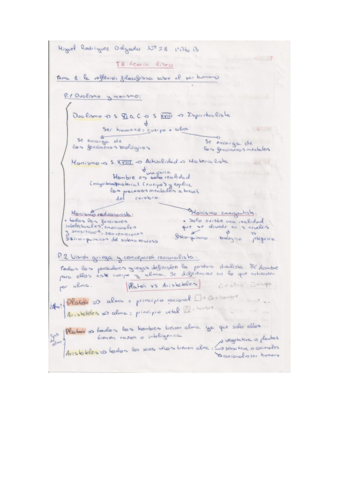 Miguel Rodríguez Delgado Nº 28 1º Bto B
Tema 8: la reflexión filosófica sobre el ser humano
P.1 Dualismo y monismo
Dualismo => S. IV a. C => S. XVII => Espiritualista
Ser humano: cuerpo + alma
Se encarga de los fenómenos biológicos
Se encarga de los fenómenos mentales
Monismo => S. XVIII => Actualidad => Materialista
Hombre es solo realidad
material (cuerpo) y explica
los procesos mentales a través
del cerebro
Monismo reduccionista
todas las funciones
intelectuales, emocionales
Monismo emergentista
Solo existe una realidad
que se divide en 3 niveles
Físico-químico biológico psíquico
P.2 Visión griega y concepción racionalista
Todos los pensadores griegos defienden la postura dualista. El hombre
para ellos está cuerpo y alma. Se diferencian en lo que entienden
por alma.
Platón vs Aristóteles
Platón => alma = principio racional
Aristóteles => alma = principio vital
Platón => todos los hombres tienen alma ya que solo ellos
tienen razón o inteligencia
Aristóteles => todos los seres vivos tienen alma
vegetativa => plantas
sensitiva => animales
racional => ser humano